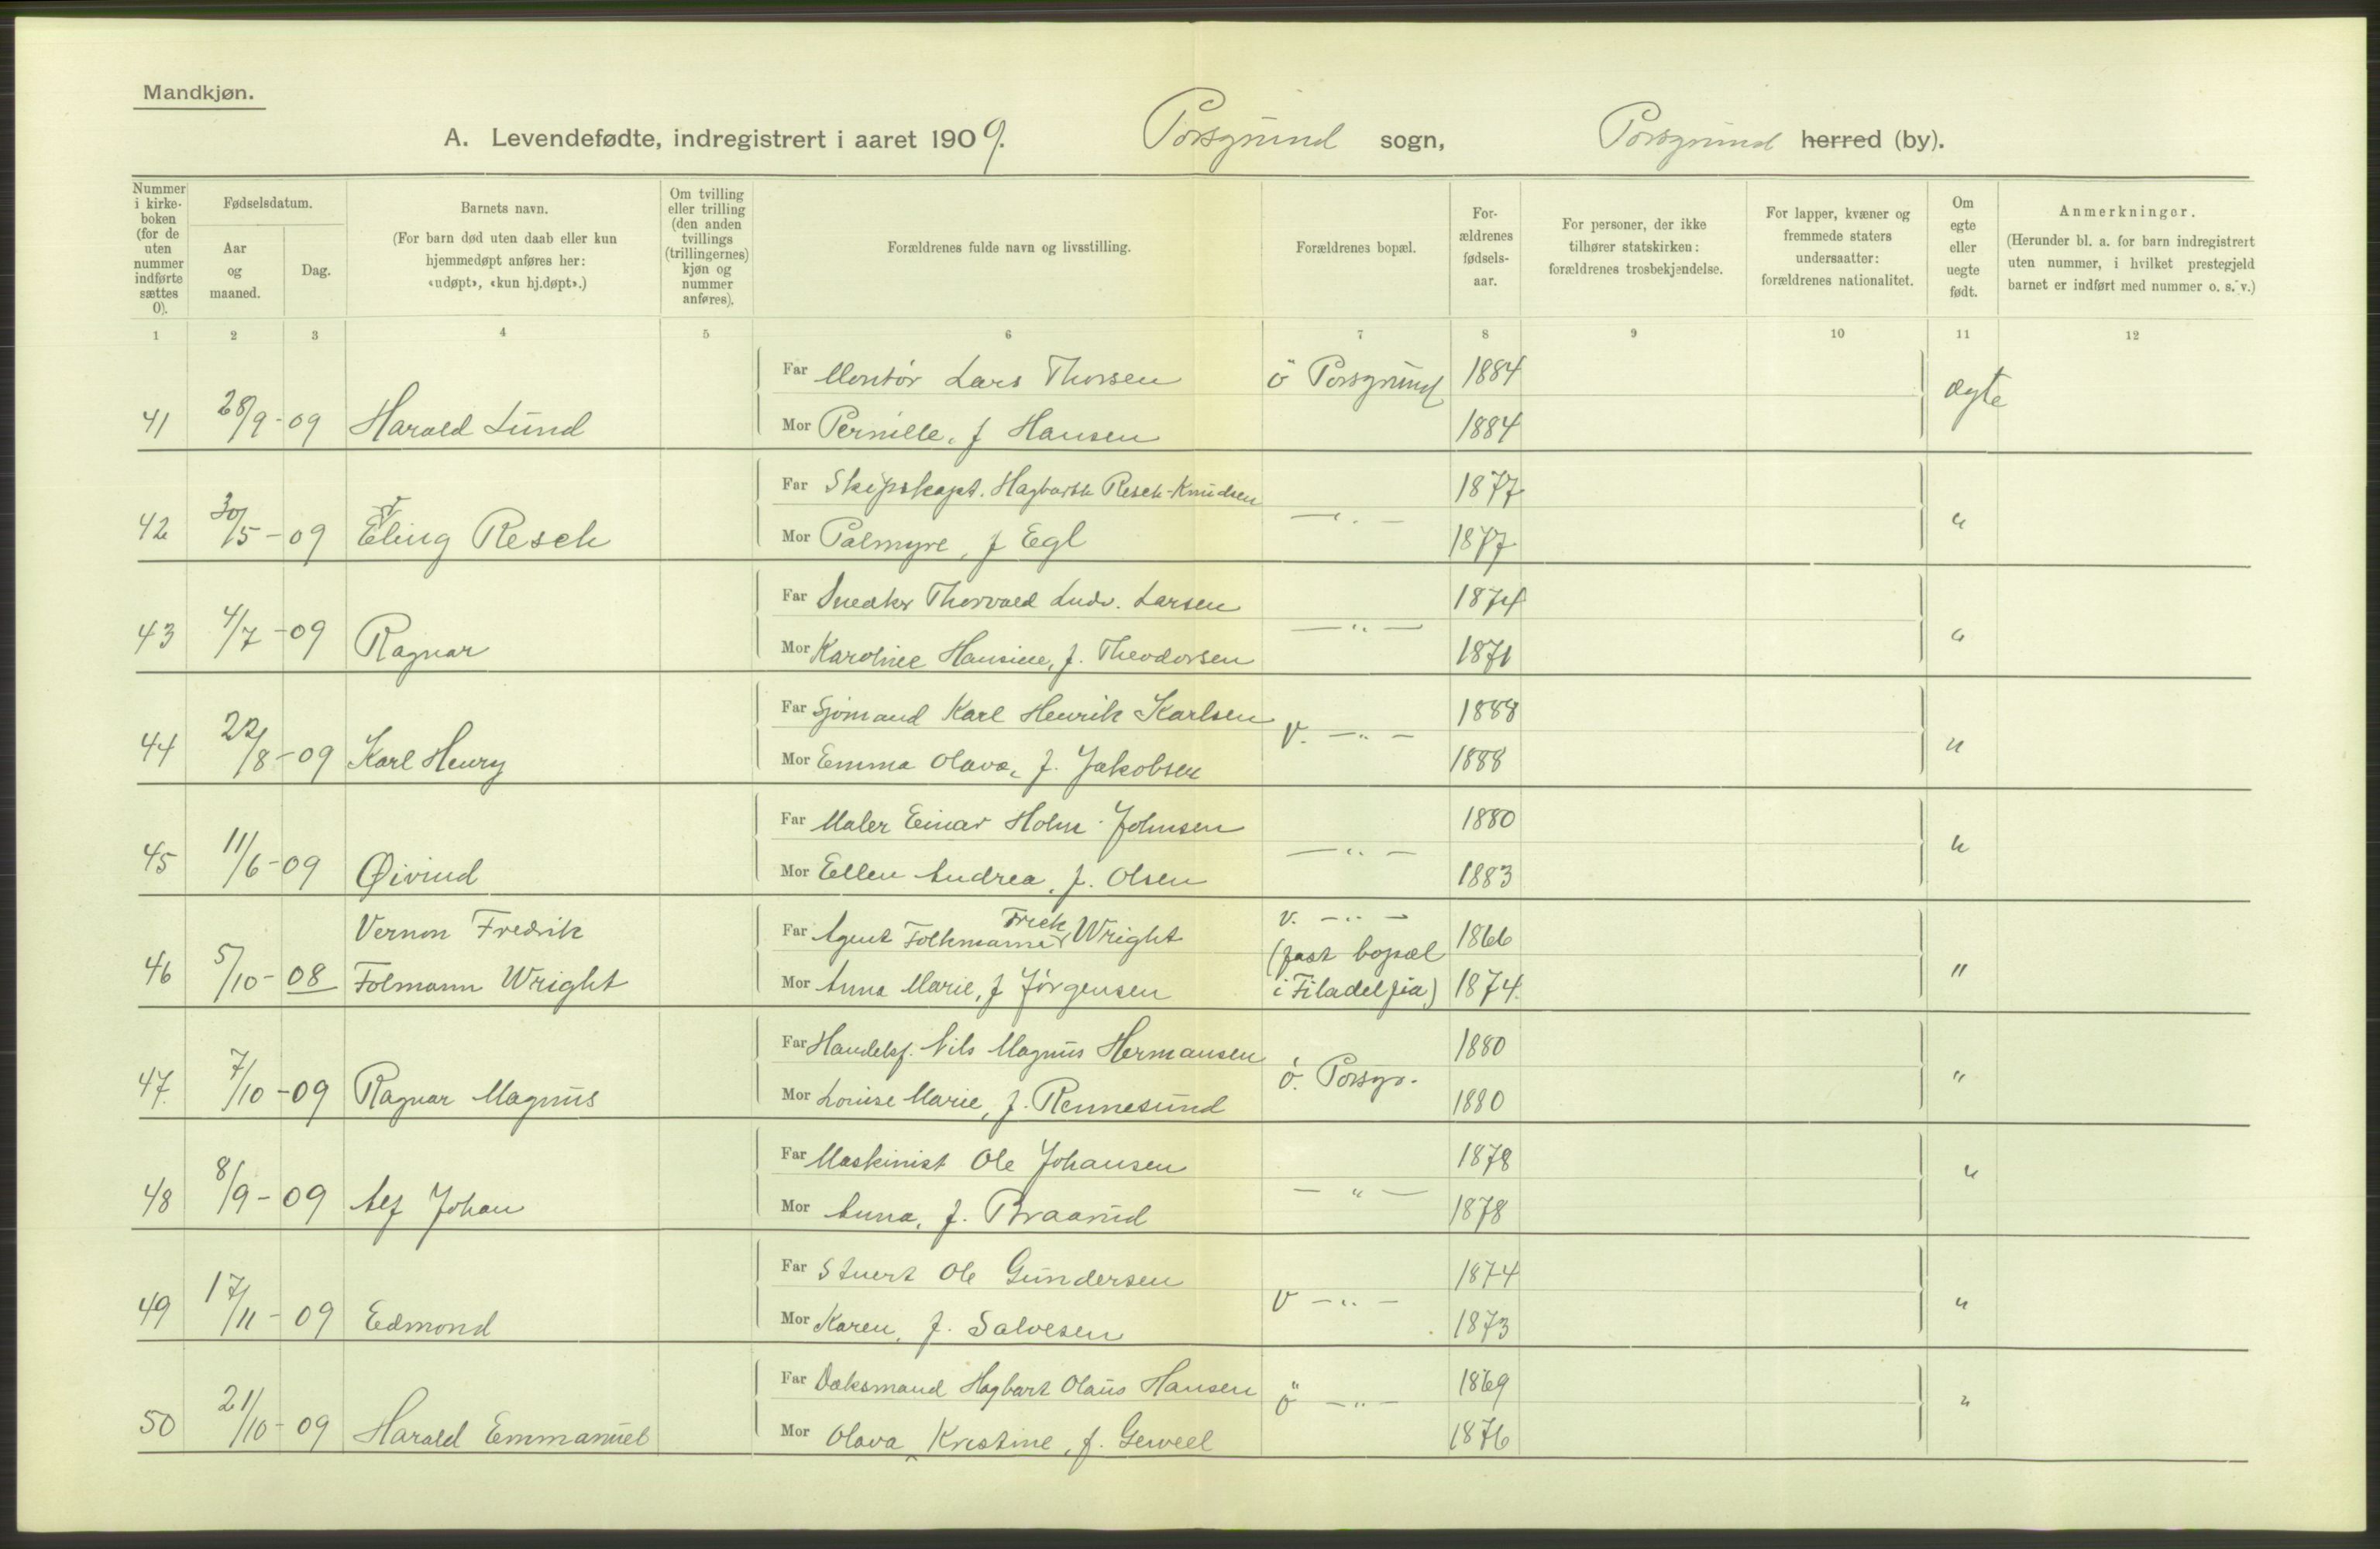 Mandkjøn.
A. Levendefødte, indregistrert i aaret 1909. Porsgrund sogn, Porsgrund herred (by).
Nummer i kirke-boken (for de uten nummer indførte sættes 0).
Fødselsdatum.
Aar og maaned.
Dag.
Barnets navn.
(For barn død uten daab eller kun hjemmedøpt anføres her: «udøpt», «kun hj.døpt».)
Om tvilling eller trilling (den anden tvillings (trillingernes) kjøn og nummer anføres).
Forældrenes fulde navn og livsstilling.
Forældrenes bopæl.
For-ældrenes fødsels-aar.
For personer, der ikke tilhører statskirken: forældrenes trosbekjendelse.
For lapper, kvæner og fremmede staters undersaatter: forældrenes nationalitet.
Om egte eller uegte født.
Anmerkninger.
(Herunder bl. a. for barn indregistrert uten nummer, i hvilket prestegjeld barnet er indført med nummer o. s. v.)
1 2 3 4 5 6 7 8 9 10 11 12
Far Montør Lars Thorsen ö Porsgrund 1884 ægte
41 28/9-09 Harald Lund Mor Pernille, f Hansen 1884
Far Skipskapt. Hagbarth Resch-Knudsen 1877
42 30/5-09 Eling Resch Mor Palmyre, f Egl — " — 1877 "
Far Snedker Thorvald Ludv. Larsen 1874
43 4/7-09 Ragnar Mor Karoline Hansine, f. Theodorsen — " — 1871 "
Far Sjømand Karl Henrik Karlsen 1888
44 22/8-09 Karl Henry Mor Emma Olava, f. Jakobsen V. — " — 1888 "
Far Maler Einar Holm Johnsen 1880
45 11/6-09 Øivind Mor Ellen Andrea, f. Olsen — " — 1883 "
Vernon Fredrik Far Agent Folkmanner Frek Wright V. — " — 1866
46 5/10-08 Folmann Wright Mor Anna Marie, f Jørgensen (fast bopæl i Filadelfia) 1874. "
Far Handelsf. Nils Magnus Hermansen 1880
47. 7/10-09 Ragnar Magnus Mor Louise Marie, f. Rennesund ö. Porsgr. 1880 "
Far Maskinist Ole Johansen 1878
48 8/9-09 Alf Johan Mor Anna, f. Braarud — " — 1878 "
Far Stuert Ole Gundersen 1874
49 17/11-09 Edmond Mor Karen, f. Salvesen V — " — 1873 "
Far Dæksmand Hagbart Olaus Hansen 1869
50 21/10-09 Harald Emmanuel Mor Olava Kristine, f. Gerveel ö — " — 1876 "